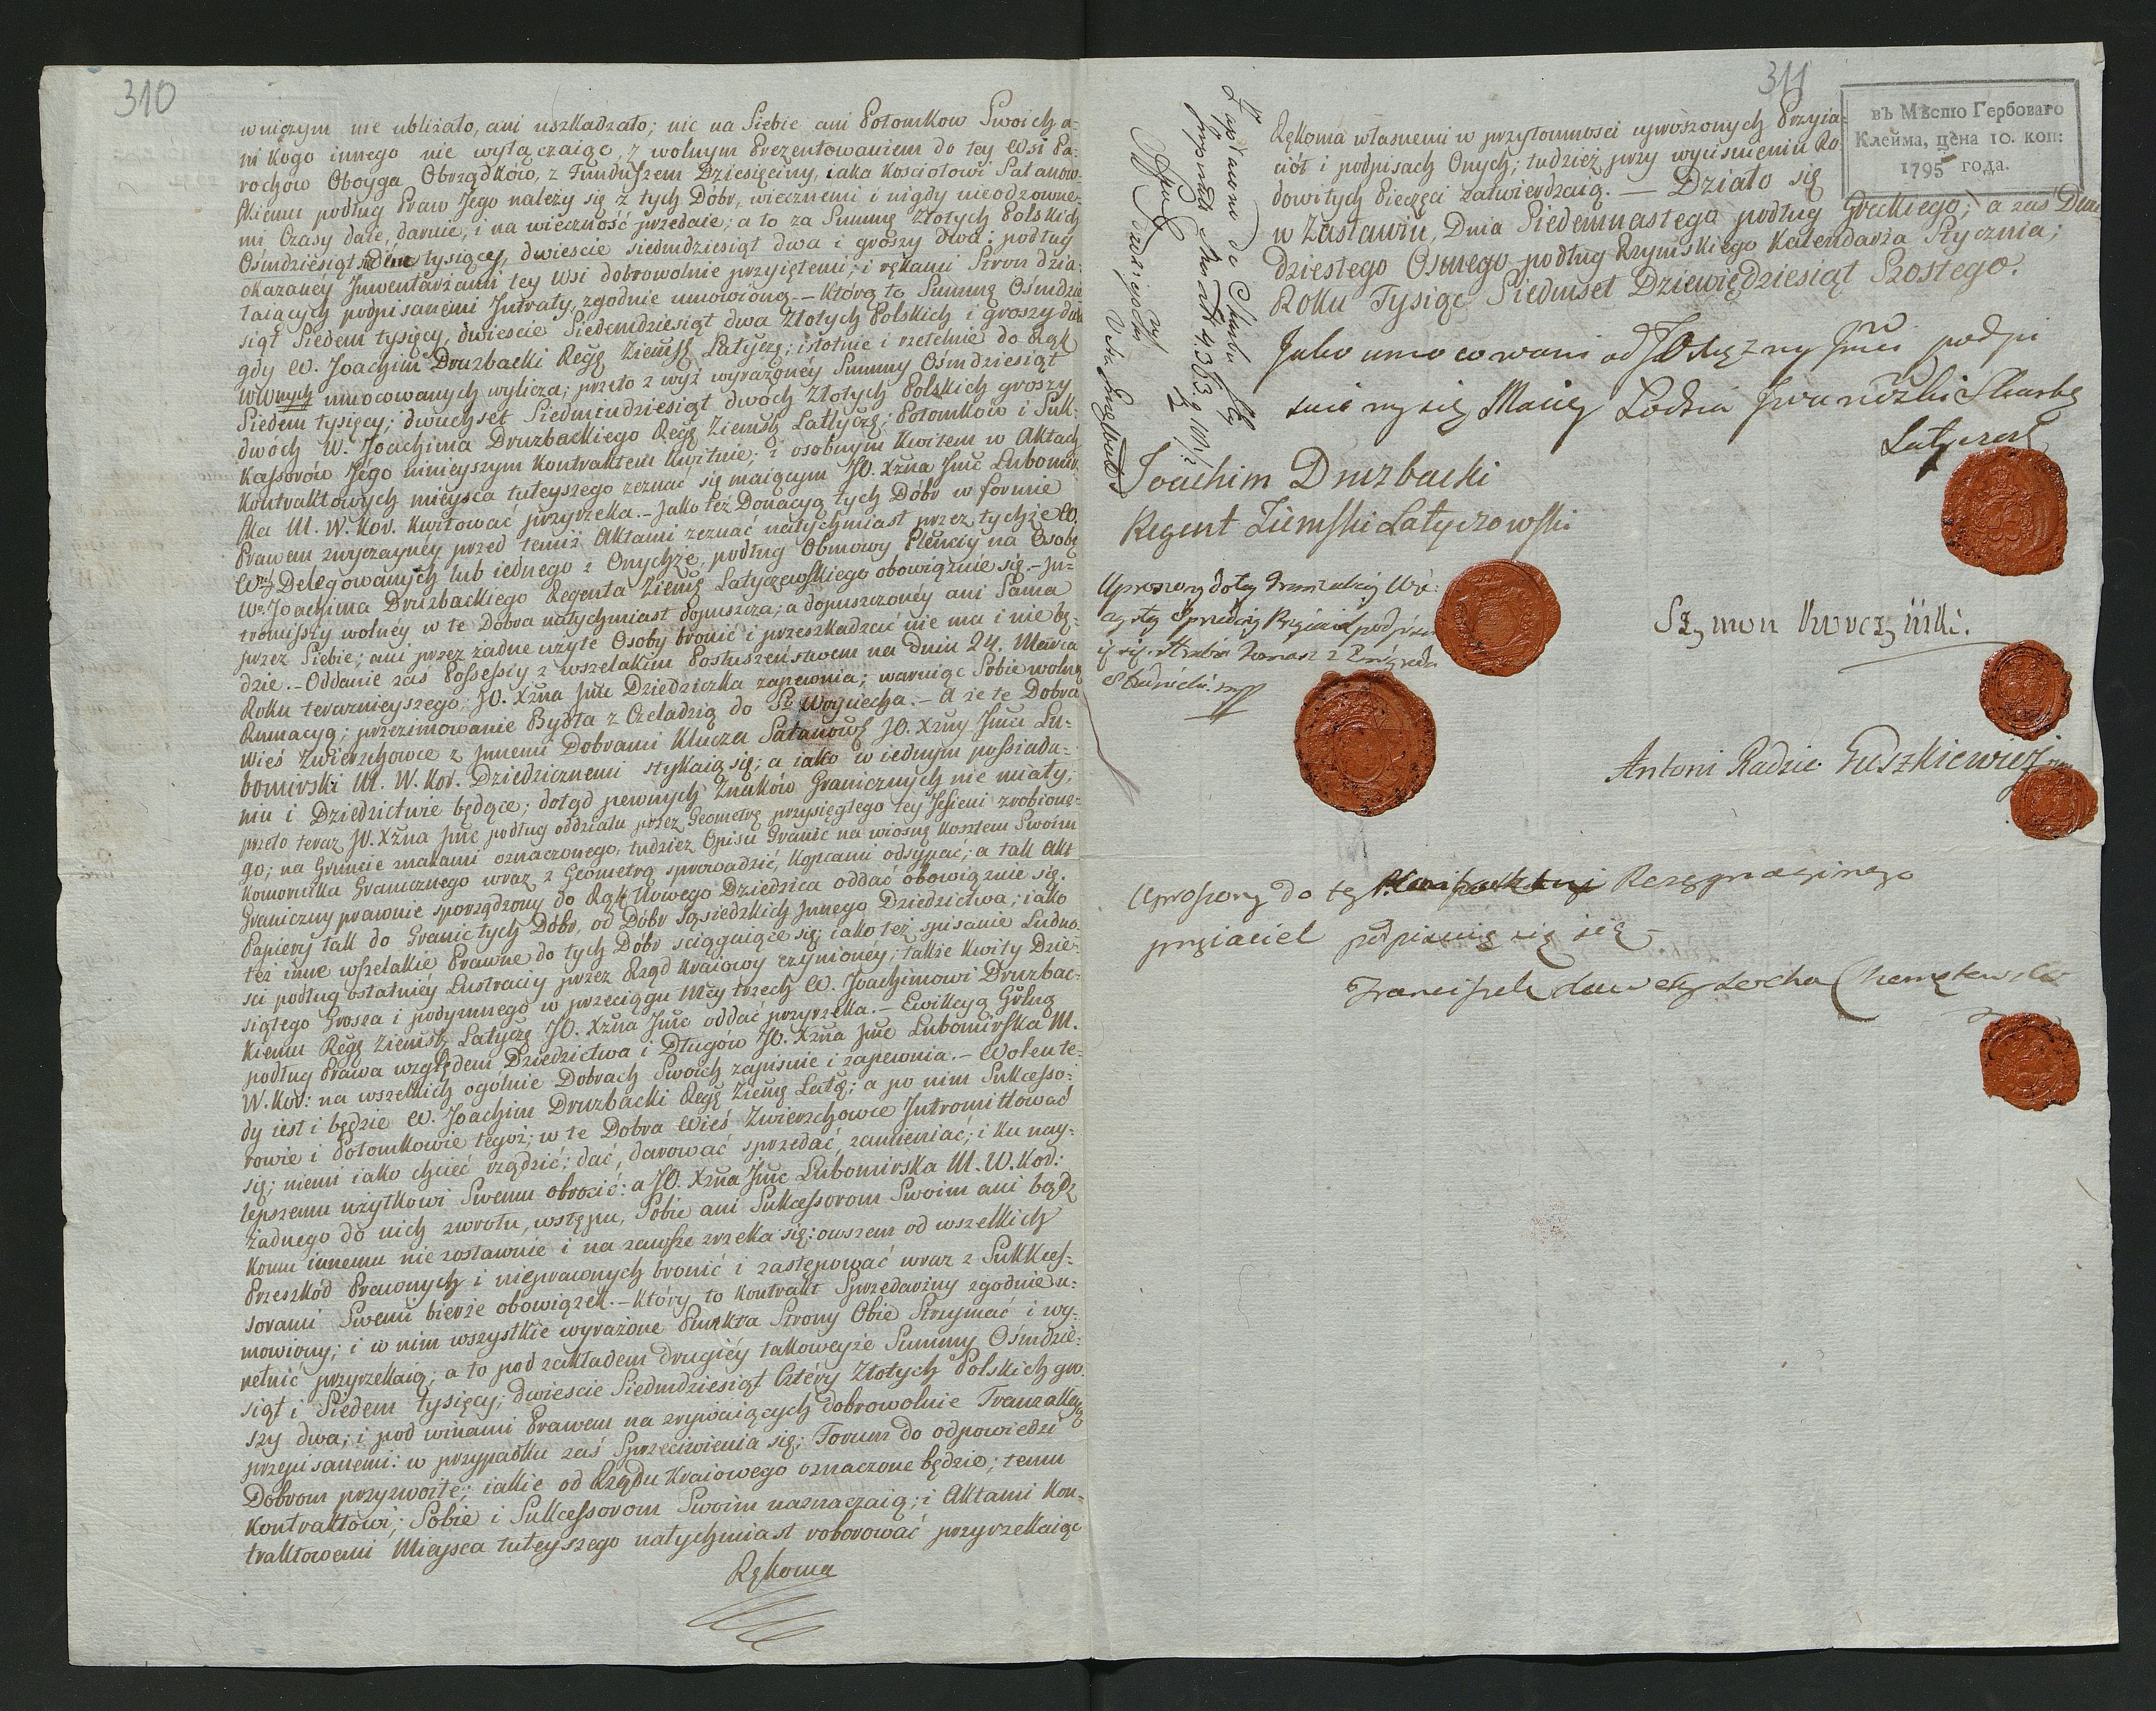 310
wniczym nie ubliżało, ani uszkadzało; nic na Siebie ani Potomkow Swoich a-
ni Kogo innego nie wyłączaiąc, z wolnym Prezentowaniem do tey Wsi Pa-
rochow Oboyga Obrządków, z Funduszem Dziesięciny, iaka Kosciołowi Satanow-
skiemu podług Praw Jego należy się z tych Dóbr, wiecznemi i nigdy nieodzowne-
mi Czasy daie, daruie, i na wieczność przedaie; a to za Summę Złotych Polskich
Ośmdziesiąt siedm tysięcy, dwiescie siedmdziesiąt dwa i groszy dwa; podług
okazaney Inwentarzami tey Wsi dobrowolnie przyiętemi; i rękami Stron dzia-
łaiących podpisanemi Intraty, zgodnie umowioną. - Którą to Summę Ośmdzie
siąt Siedem tysięcy, dwiescie Siedemdziesiąt dwa Złotych Polskich i groszy dwa
gdy W. Joachim Druzbacki Regt Ziemsk Latycz; istotnie i rzetelnie do Rąk
WWnych umocowanych wylicza; przeto z wyż wyrażonéy Summy Ośmdziesiąt
Siedem tysięcy; dwuchset Siedmiudziesiąt dwóch Złotych Polskich groszy
dwóch W. Joachima Druzbackiego Regt Ziemsk Latycz; Potomków i Suk-
kassorów Jego ninieyszym Kontraktem kwituie; i osobnym Kwitem w Aktach
Kontraktowych mieysca tuteyszego zeznać się maiącym JO. Xżna Jmć Lubomir
ska M. W. Kov. Kwitować przyrzeka. - Jako też Donacyą tych Dóbr w formie
Prawem zwyczaynéy przed temiż Aktami zeznać natychmiast przez tychże W.
Wnych Delegowanych lub iednego z Onychże, podług Obmowy Plencyi na Osobę
Wo. Joachima Druzbackiego Regenta Ziemsk Latyczewskiego obowiązuie się. - In-
tromissyi wolnéy w te Dobra natychmiast dopuszcza; a dopuszczonéy ani Sama
przez Siebie; ani przez żadne użyte Osoby bronić i przeszkadzać nie ma i nie bę-
dzie. - Oddanie zaś Possessyi z wszelakim Posłuszeństwem na dniu 24. Marca
Roku terazniejszego; JO. Xżna Jmc Dziedziczka zapewnia; waruiąc Sobie wolną
Rumacyą; przezimowanie Bydła z Czeladzią do Sgo Woyciecha. - A że te Dobra
Wieś Zwierzchowce z Jnnemi Dobrami Klucza Satanows JO. Xżny Jmci Lu-
bomirski M. W. Kov. Dziedzicznemi stykaią się; a iako w iednym possiada-
niu i Dziedzictwie będące; dotąd pewnych Znaków Granicznych nie miały;
przeto teraz JO. Xżna Jmć podług oddziału przez Geometrę przysięgłego tey Jesieni zrobione-
go; na Gruncie znakami oznaczonego, tudzież Opisu Granic na wiosnę kosztem Swoim
Komornika Granicznego wraz z Geometrą sprowadzić, Kopcami odsypać; a tak Akt
Graniczny prawnie sporządzony do Rąk Nowego Dziedzica oddać obowiązuie się.
Papiery tak do Granic tych Dóbr, od Dóbr Sąsiedzkich Jnnego Dziedzictwa; iako
też inne wszelakie Prawne do tych Dóbr sciągaiące się; iako też spisanie Ludno-
ści podług ostatnéy Lustracyi przez Rząd Kraiowy czynionéy; także Kwity Dzie-
siątego Grosza i podymnego w przeciągu Mcy trzech W. Joachimowi Druzbac-
kiemu Regt Ziemsk Latycz JO. Xżna Jmć oddać przyrzeka. - Ewikcyą Gdlną
podług Prawa względem Dziedzictwa i Długów JO. Xżna Jmc Lubomirska M.
W. Kov: na wszelkich ogólnie Dobrach Swoich zapisuie i zapewnia. - Wolen te-
dy iest i będzie W. Joachim Druzbacki Regt Ziemsk Laty; a po nim Sukcesso-
rowie i Potomkowie tegoż; w te Dobra Wieś Zwierzchowce Intromittować
się; niemi iako chcieć rządzić; dać, darować sprzedać, zamieniać; i ku nay-
lepszemu użytkowi Swemu obrocić: a JO. Xżna Jmc Lubomirska M. W. Kov:
żadnego do nich zwrotu, wstępu, Sobie ani Sukcessorom Swoim ani bądź
komu innemu nie zostawuie i na zawsze zrzeka się: owszem od wszelkich
Przeszkod Prawnych i nieprawnych bronić i zastępować wraz z Sukkces-
sorami Swemi bierze obowiązek. - Który to Kontrakt Sprzedażny zgodnie u-
mowiony; i w nim wszystkie wyrażone Punkta Strony Obie Strzymać i wy-
pełnić przyrzekaią; a to pod zakładem drugiéy takoweyże Summy Ośmdzie-
siąt i Siedem tysięcy; dwiescie Siedmdziesiąt Cztéry Złotych Polskich gro-
szy dwa; i pod winami Prawem na zrywaiących dobrowolnie Tranzakcye
przepisanemi: w przypadku zaś Sprzeciwienia się; Forum do odpowiedzi
Dobrom przyzwoite; iakie od Rządu Kraiowego oznaczone będzie; temu
Kontraktowi; Sobie i Sukcessorom Swoim naznaczaią; i Aktami Kon-
traktowemi Mieysca tuteyszego natychmiast roborować przyrzekaiąc
Rękoma
311
въ Мѣсто Гербоваго
Клейма, цѣна 10. коп:
1795 года.
Rękoma własnemi w przytomnosci uproszonych Przyia-
ciół i podpisach Onych; tudzież przy wycisnieniu Ro-
dowitych Pieczęci zatwierdzaią. - Działo się
w Zasławiu, Dnia Siedemnastego podług Grecкiego; a zaś Dwu
dziestego Osmego podług Rzymskiego Kalendarza Stycznia;
Roku Tysiąc Siedmset Dziewięćdziesiąt Szostego.
Zapłacono do Skarbu
Jako umocowani od JO Xiężny Jmci podpi
suiemy się Maciey Łodzia Iwanowski Skarb
Latyczews
Joachim Druzbacki
Regent Ziemski Latyczowski
Uproszony do tey Tranzakcyi Wie-
czystey Sprzedaży Przyiaciel podpisu
ię się. Hrabia Tomasz z
Stadnicki. mp
Szymon Kurczński.
Antoni Radzic Guszkiewicz
Uproszony do tey Rezygnacyinego
przyiaciel podpisuię się
Franciszek